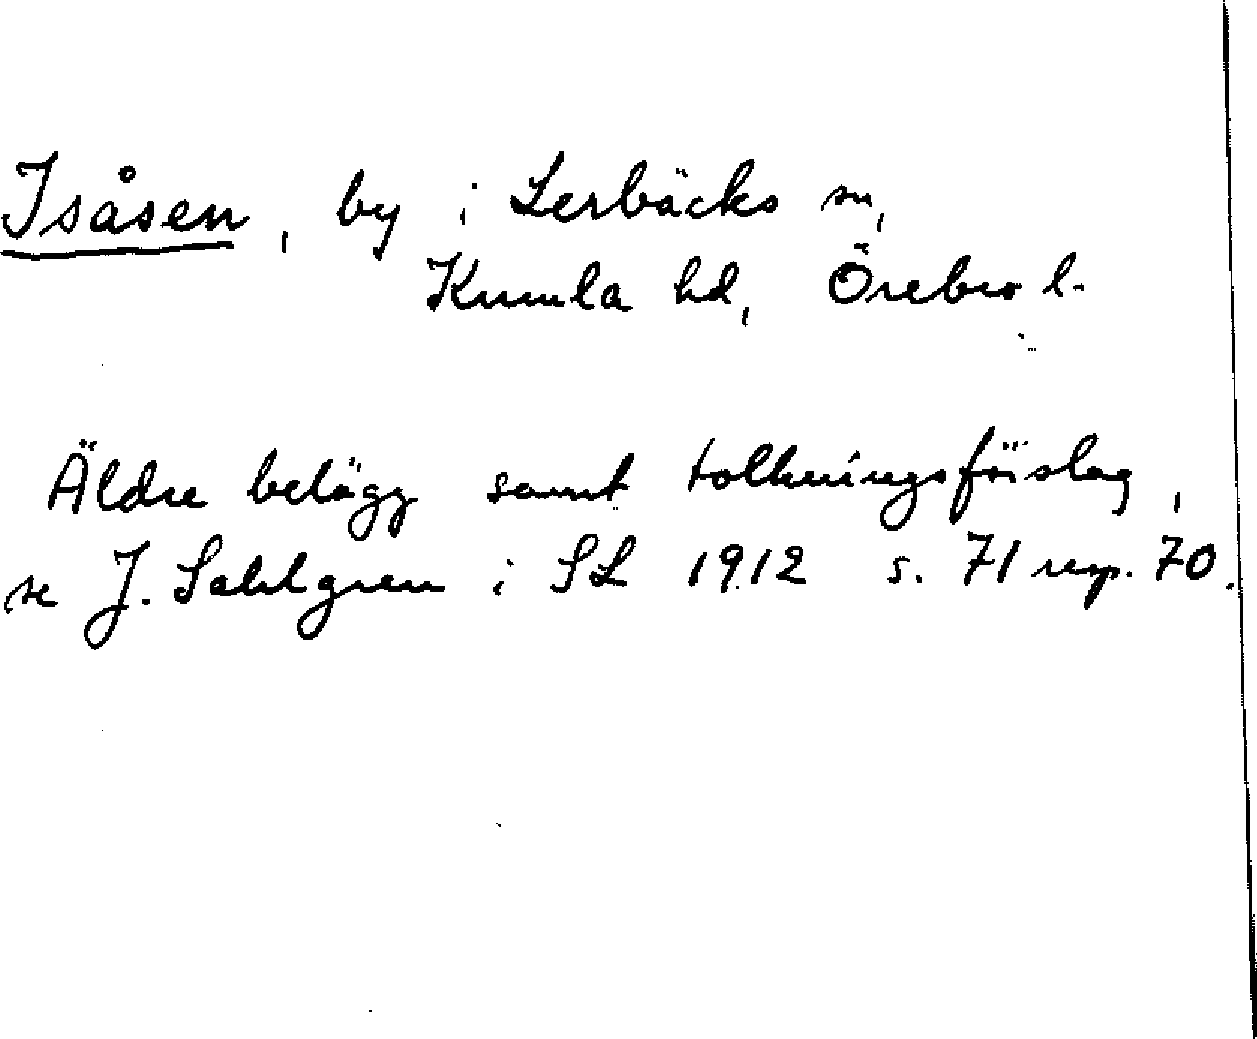 Isåsen, by i Lerbäcks sn,
Kumla hd, Örebro l.
Äldre belägg samt tolkningsförslag,
se J. Sahlgren i SL 1912 s. 71 resp. 70.